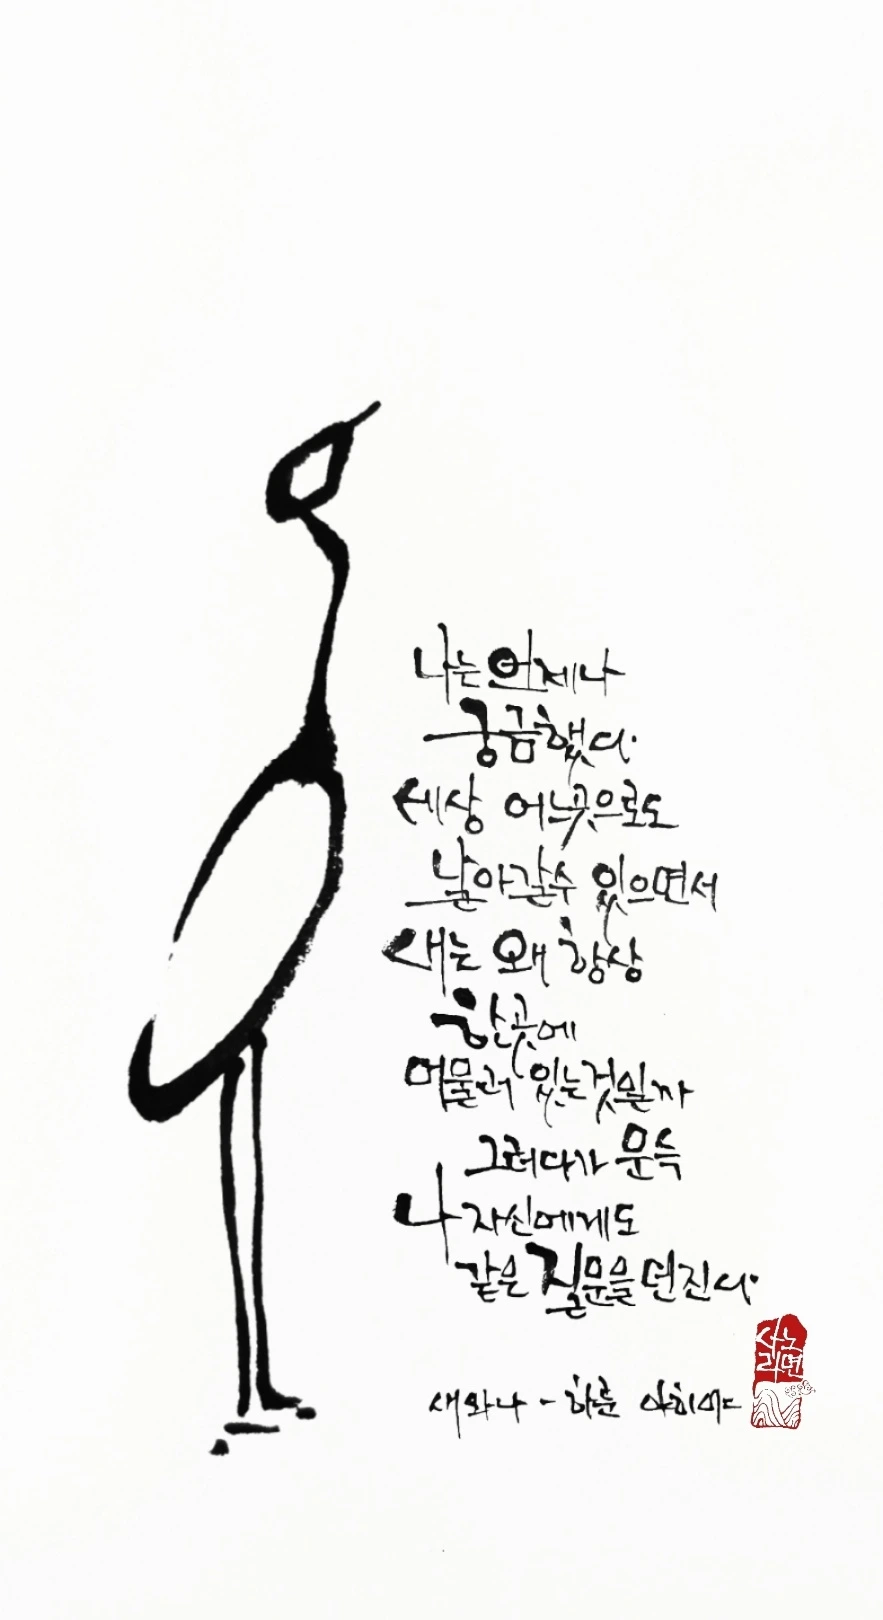 나는 언제나
궁금했다.
세상 어느곳으로도
날아갈수 있으면서
새는 왜 항상
한곳에
머물러 있는것일까
그러다가 문득
나 자신에게도
같은 질문을 던진다.
새와나 - 하룬 야히아